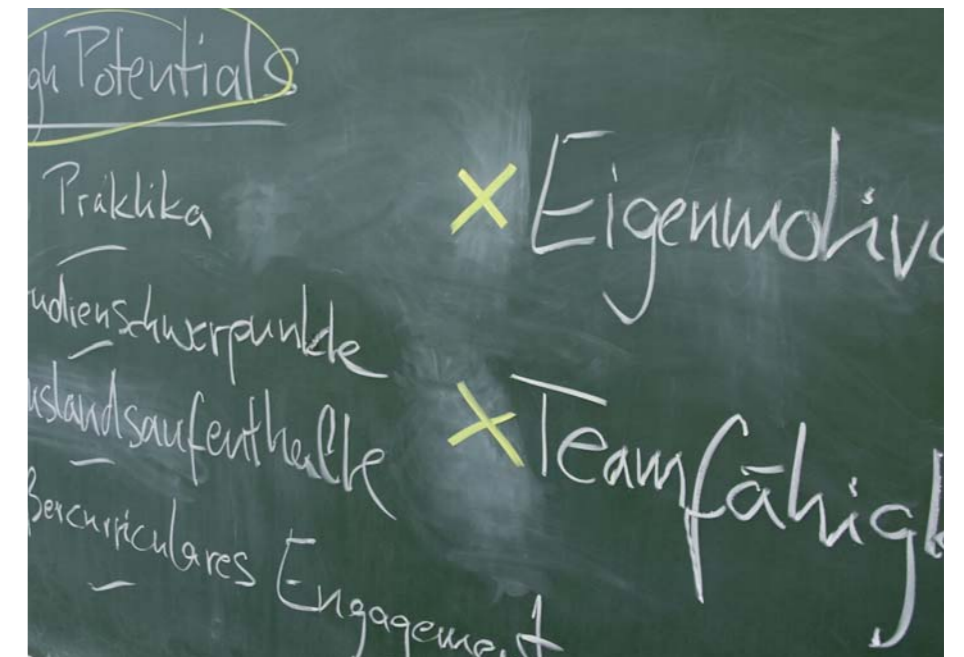 gh Potentials
Praktika
udienschwerpunkte
uslandsaufenthalte
ßercurriculares Engagement
Eigenmotiva
Teamfähigk